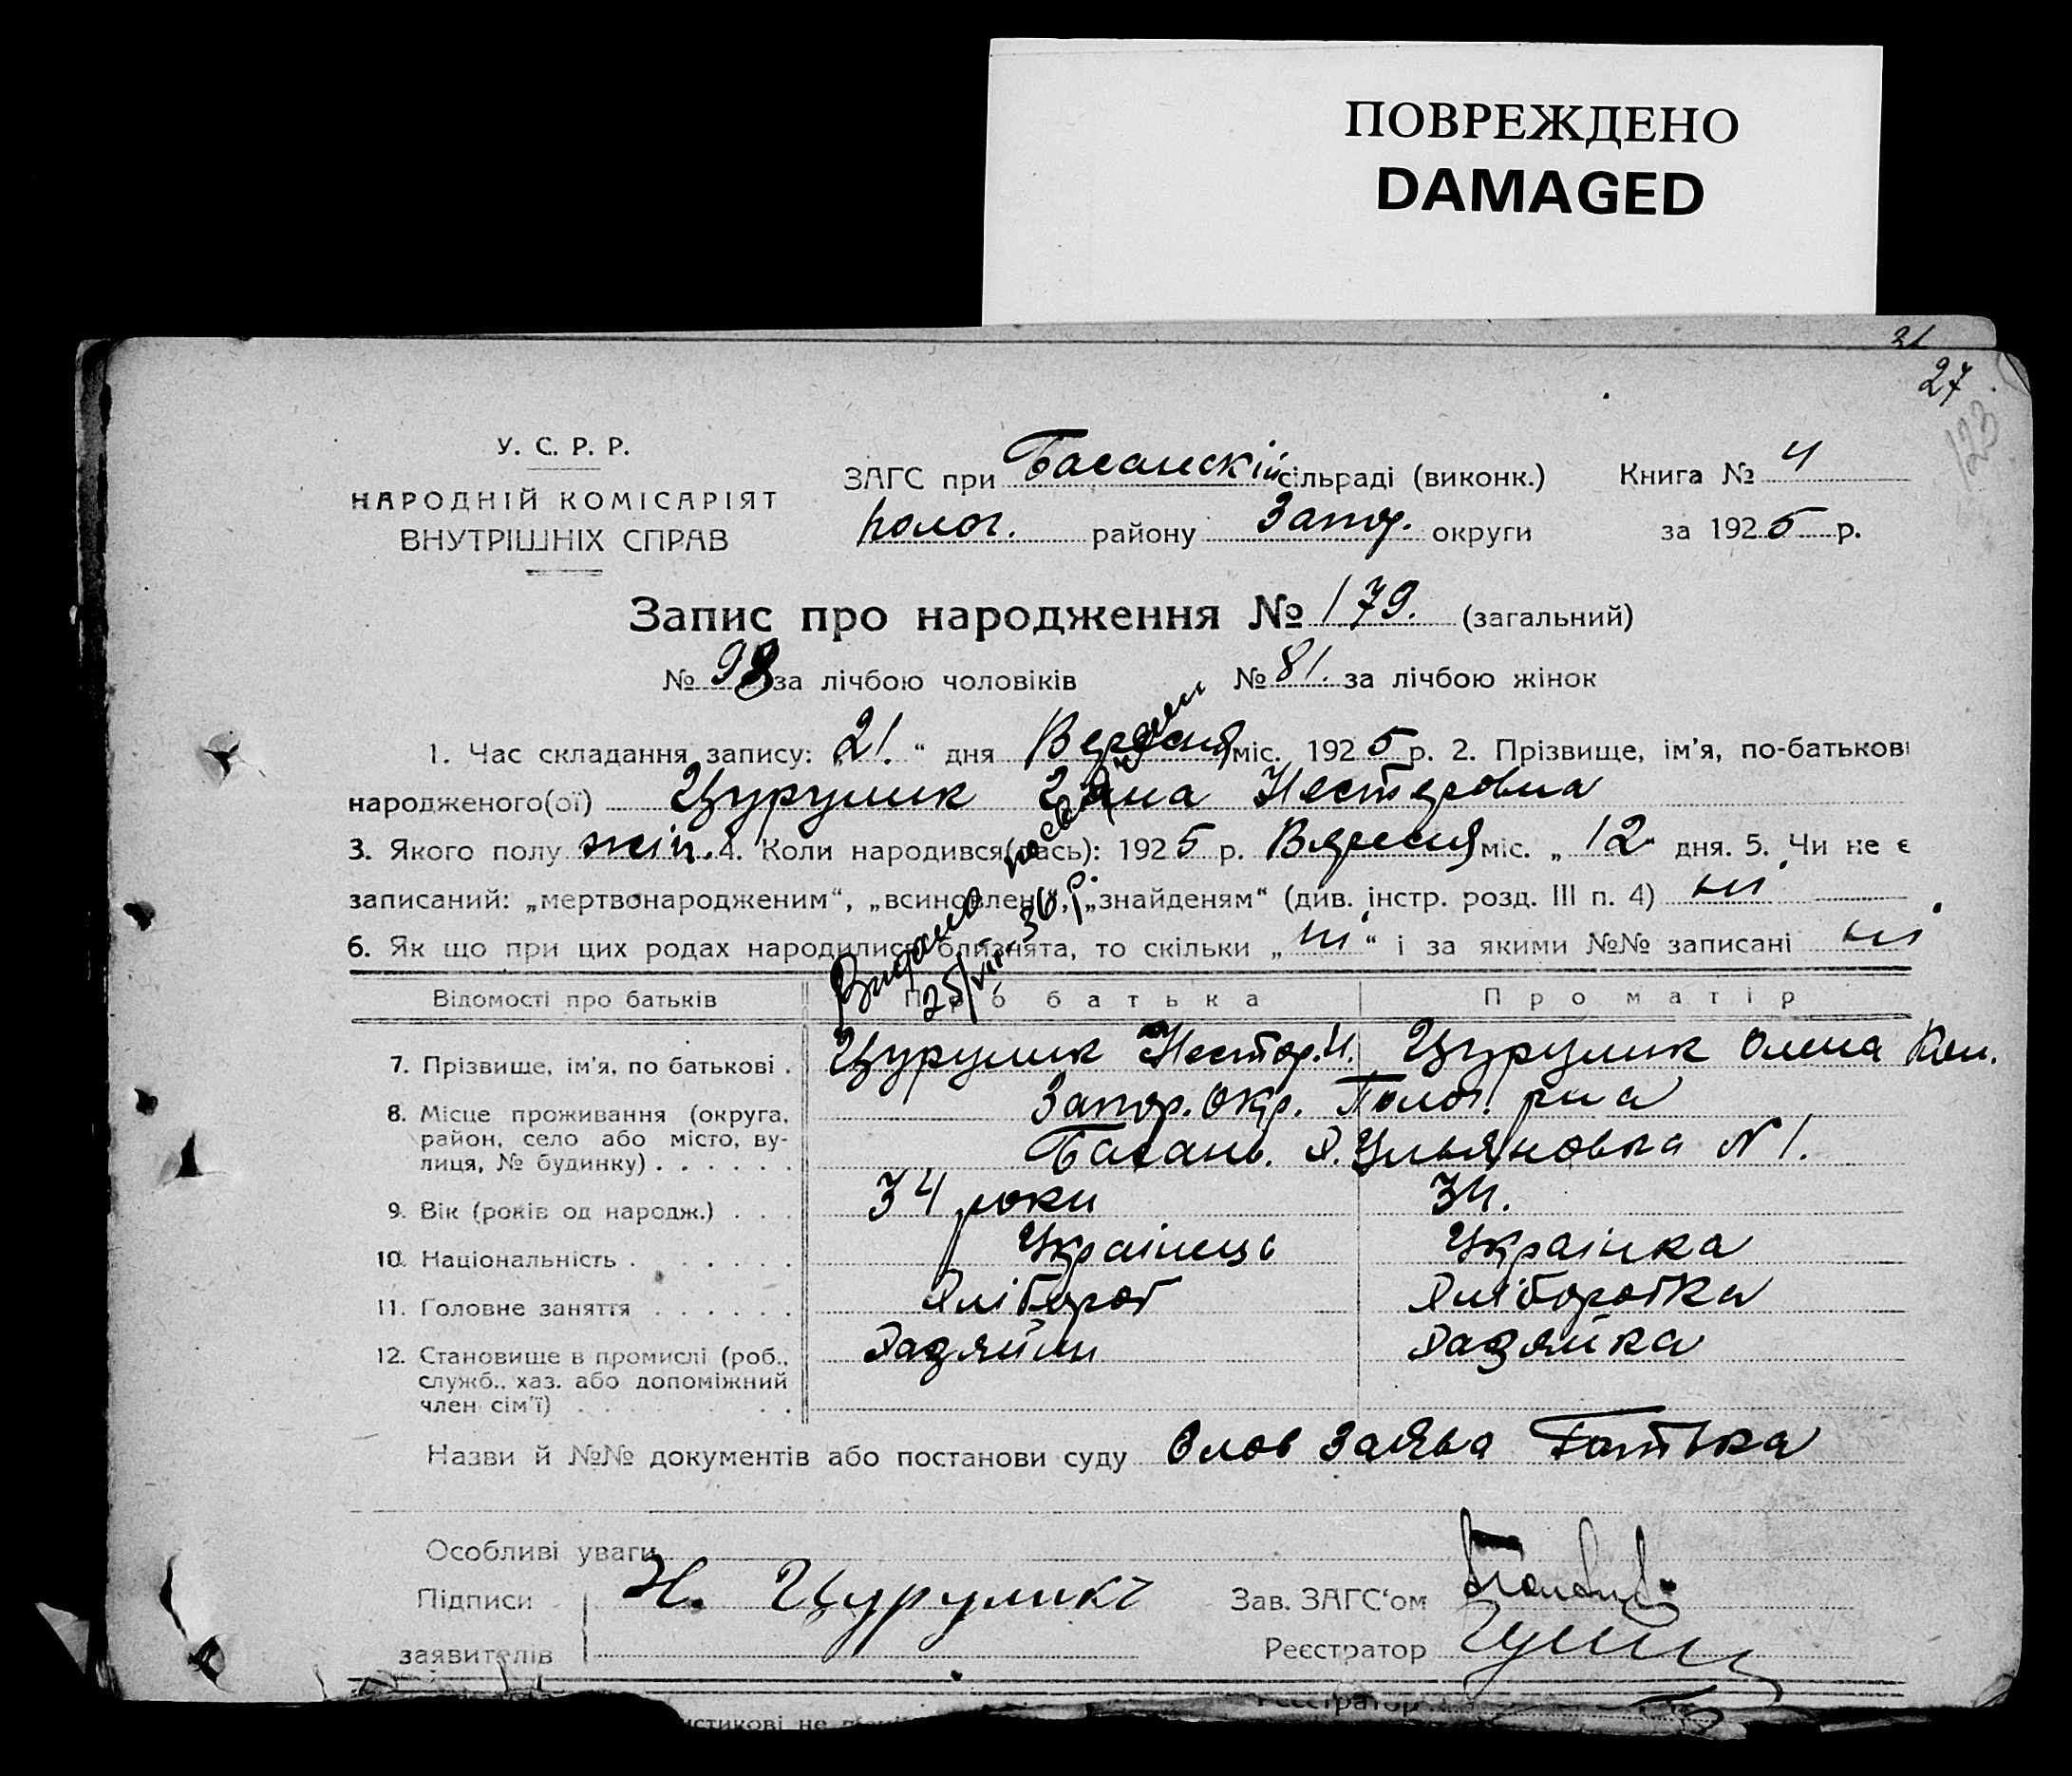 ПОВРЕЖДЕНО
DAMAGED
31
27
123
У. С. Р. Р.
НАРОДНІЙ КОМІСАРІЯТ
ВНУТРІШНІХ СПРАВ
ЗАГС при Басанскій сільраді (виконк.) Книга № 4
Полог. району Запор. округи за 1925 р.
Запис про народження № 179. (загальний)
№ 98 за лічбою чоловіків № 81. за лічбою жінок
1. Час складання запису: „21." дня Вересня міс. 1925 р. 2. Прізвище, ім'я, по-батькові
народженого(ої) Цурулик Ганна Нестеровна
3. Якого полу жін. 4. Коли народився(лась): 1925 р. Вересня міс. „12" дня. 5. Чи не є
записаний: „мертвонародженим", „всиновлен", „знайденям" (див. інстр. розд. III п. 4) ні
6. Як що при цих родах народилися близнята, то скільки „ні" і за якими №№ записані ні
Видано
25/VII-36 р.
Відомості про батьків Про батька Про матір
7. Прізвище, ім'я, по батькові . Цурулик Нестор. И. Цурулик Олена
8. Місце проживання (округа, район, село або місто, вулиця, № будинку) . . . . . . Запор. Окр. Полог. р-на
Басань. Х. Ульяновка N 1.
9. Вік (років од народж.) . . . 34 роки 34.
10. Національність . . . . . . . Українець Українка
11. Головне заняття . . . . . . Хлібороб Хліборобка
12. Становище в промислі (роб., служб., хаз. або допоміжний член сім'ї) . . . . . . Хазяйин Хазяйка
Назви й №№ документів або постанови суду Слов Заява Батька
Особливі уваги
Підписи Н. Цурулик Зав. ЗАГС'ом
заявителів Реєстратор
Реєстратор